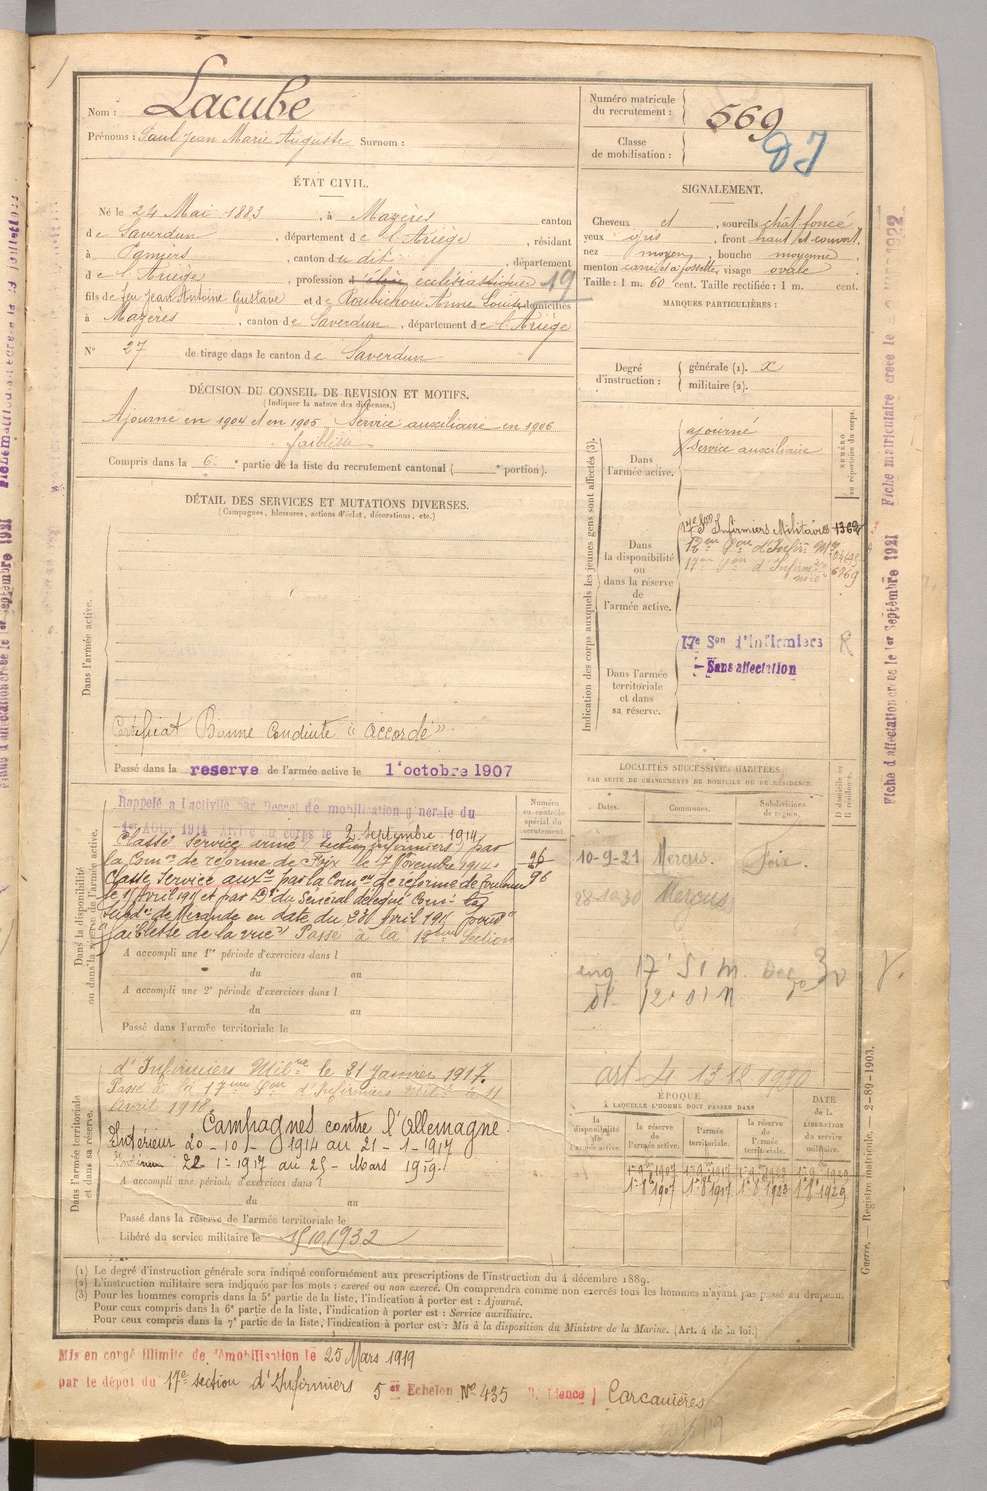 Nom : Lacube
Prénoms : Paul Jean Marie Auguste Surnom :
Numéro matricule du recrutement : 569
Classe de mobilisation :
ÉTAT CIVIL.
Né le 24 Mai 1883, à Mazères canton
de Saverdun, département de l'Ariège, résidant
à, canton du dit, département
de l'Ariège, profession d'élève ecclésiastique 19
fils de feu Jean Antoine Gustave et de Roubichou Anne Louise domiciliés
à Mazères, canton de Saverdun, département de l'Ariège
N° 27 de tirage dans le canton de Saverdun
SIGNALEMENT.
Cheveux et, sourcils chât foncé
yeux gris, front haut et couvert
nez moyen, bouche moyenne
menton carré et à fossette, visage ovale
Taille : 1 m. 60 cent. Taille rectifiée : 1 m. cent.
MARQUES PARTICULIÈRES :
Degré d'instruction : générale (1). x
militaire (2).
DÉCISION DU CONSEIL DE REVISION ET MOTIFS.
(Indiquer la nature des dispenses.)
Ajourné en 1904 et en 1905 Service auxiliaire en 1906
faiblesse
Compris dans la 6e partie de la liste du recrutement cantonal ( portion).
DÉTAIL DES SERVICES ET MUTATIONS DIVERSES.
(Campagnes, blessures, actions d'éclat, décorations, etc.)
Dans l'armée active.
Certificat Bonne Conduite "Accordé"
Passé dans la reserve de l'armée active le 1er octobre 1907
Indication des corps auxquels les jeunes gens sont affectés (3).
NUMÉRO au répertoire du corps.
Dans l'armée active.
ajourné
Service auxiliaire
Dans la disponibilité ou dans la réserve de l'armée active.
17e Son Infirmiers Militaires 1362
12e Son d'Infirs Mres
17e Son d'Infirm 6969
Dans l'armée territoriale et dans sa réserve.
17e Son d'Infirmiers R
Sans affectation
Dans la disponibilité ou dans la réserve de l'armée active.
Rappelé à l'activité par Décret de mobilisation générale du
1er Août 1914 Arrivé au corps le 2 Septembre 1914
Classé service armé (section infirmiers) par
la Comon de réforme de Foix le 7 Novembre 1914.
Classé Service auxre par la Comon de réforme de Toulouse
subdon de Mirande en date du
faiblesse de la vue" Passé à la 12eme Section
Numéro au contrôle spécial du recrutement.
96
96
A accompli une 1re période d'exercices dans l
du au
A accompli une 2e période d'exercices dans l
du au
Passé dans l'armée territoriale le
LOCALITÉS SUCCESSIVES HABITÉES
PAR SUITE DE CHANGEMENTS DE DOMICILE OU DE RÉSIDENCE.
Dates. Communes. Subdivisions de région. D domicile ou R résidence.
10-9-21 Mercus. Foix.
28-10-30 Mercus
Dans l'armée territoriale et dans sa réserve.
d'Infirmiers Milres le 21 Janvier 1917.
Passé à la 17eme Son d'Infirmiers Milre le 11
Avril 1918
Campagnes contre l'Allemagne :
Intérieur 20 - 10 - 1914 au 21 - 1 - 1917
Intérieur 22 - 1 - 1917 au 25 - Mars 1919.
A accompli une période d'exercices dans l
du au
Passé dans la réserve de l'armée territoriale le
Libéré du service militaire le 15.10.1932
art 4 13 12 1930
ÉPOQUE
À LAQUELLE L'HOMME DOIT PASSER DANS
la disponibilité de l'armée active. la réserve de l'armée active. l'armée territoriale. la réserve de l'armée territoriale. DATE de la LIBÉRATION du service militaire.
1er 8bre 1907 1er 8bre 1917 1er 8bre 1923 1er 8bre 1929
(1) Le degré d'instruction générale sera indiqué conformément aux prescriptions de l'instruction du 4 décembre 1889.
(2) L'instruction militaire sera indiquée par les mots : exercé ou non exercé. On comprendra comme non exercés tous les hommes n'ayant pas passé au drapeau.
(3) Pour les hommes compris dans la 5e partie de la liste, l'indication à porter est : Ajourné.
Pour ceux compris dans la 6e partie de la liste, l'indication à porter est : Service auxiliaire.
Pour ceux compris dans la 7e partie de la liste, l'indication à porter est : Mis à la disposition du Ministre de la Marine. (Art. 4 de la loi.)
Mis en congé illimité de démobilisation le 25 Mars 1919
par le dépôt du 17e section d'Infirmiers 5e Echelon No 435 Résidence Carcanières
Guerre. — Registre matricule. — 2-89-1903.
Fiche d'affectation créée le 1er Septembre 1921
Fiche matriculaire créée le 1922